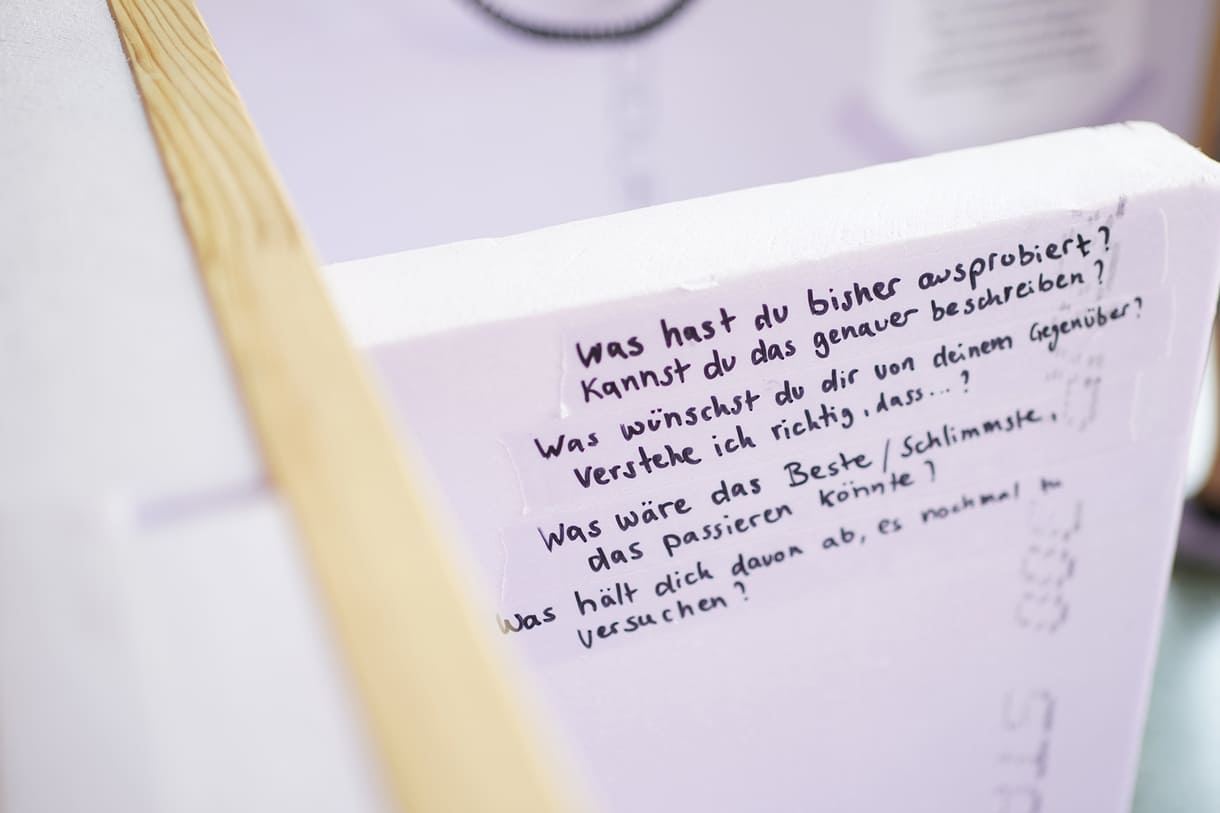 Was hast du bisher ausprobiert?
Kannst du das genauer beschreiben?
Was wünschst du dir von deinem Gegenüber?
Verstehe ich richtig, dass...?
Was wäre das Beste / Schlimmste,
das passieren könnte?
Was hält dich davon ab, es nochmal zu
versuchen?